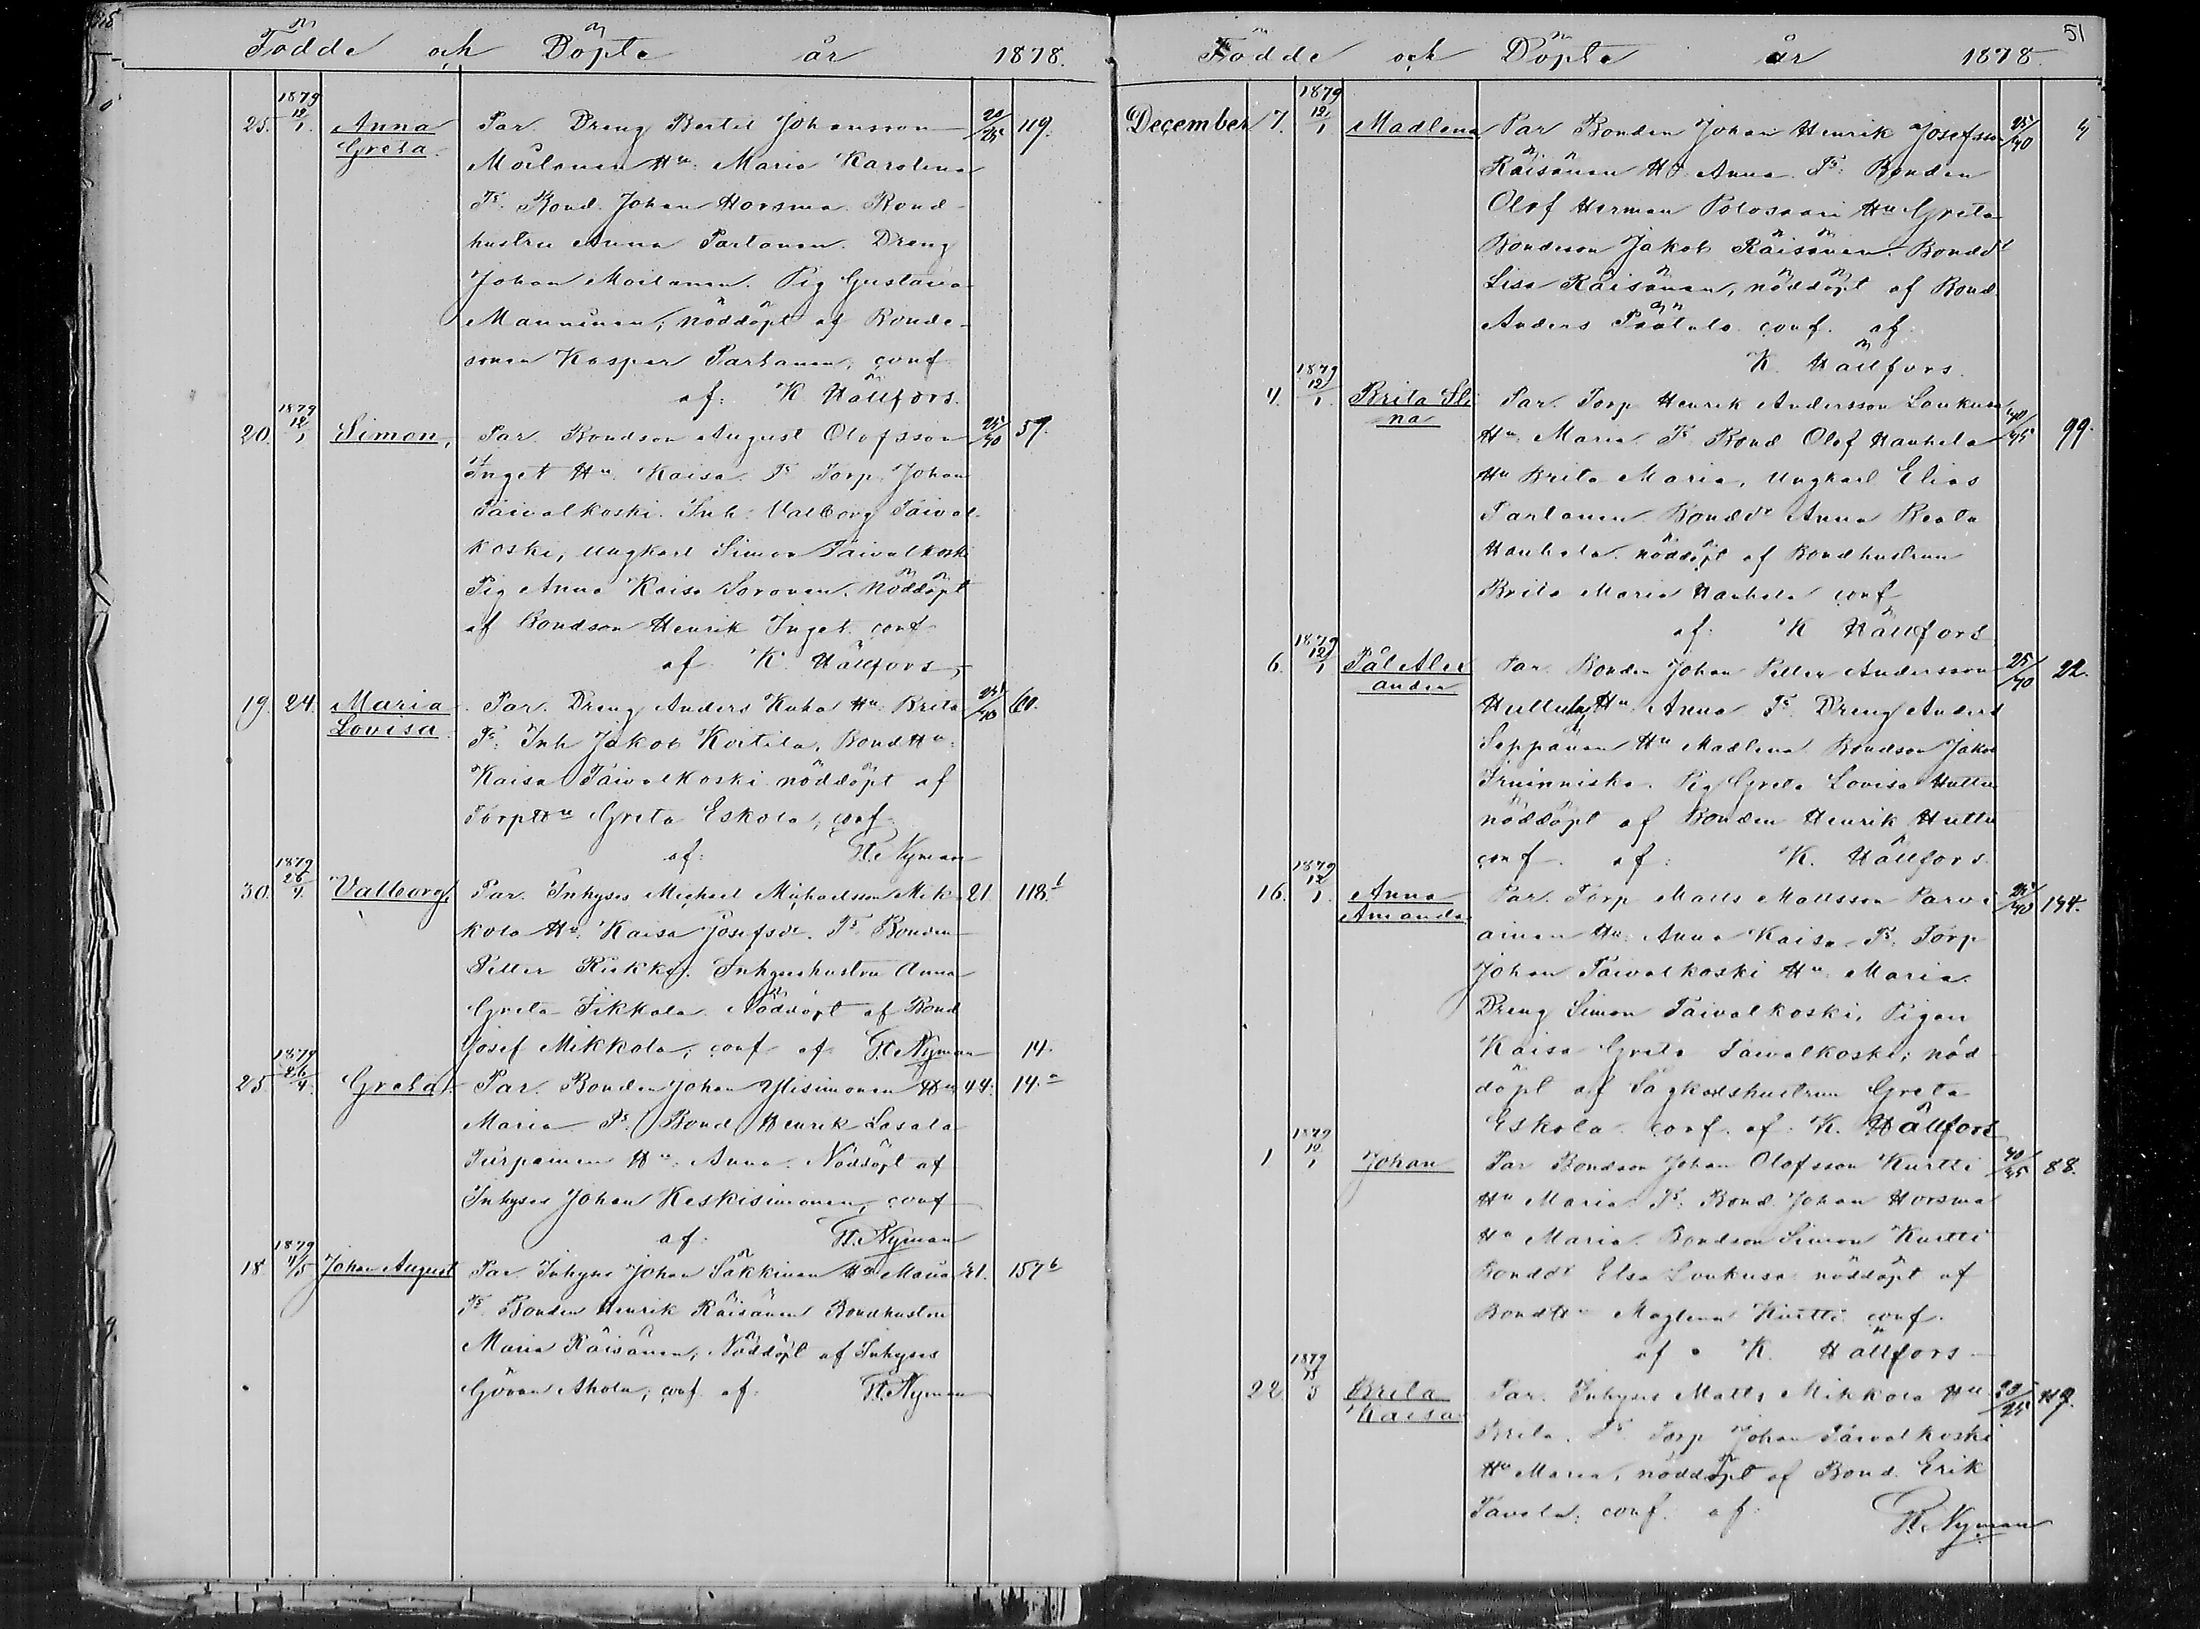 Födde och Döpte år 1878.
25. 1879 12/1. Anna Greta. Par. Dreng Bertil Johansson 20/25 119.
Moilanen Hu. Maria Karolina
Ts. Bond. Johan Horsma. Bond-
hustru Anna Partanen. Dreng
Johan Moilanen. Pig Gustava
Manninen, nöddöpt af Bonde-
sonen Kasper Partanen, conf
af: K. Hällfors.
20. 1879 12/1 Simon, Par. Bondson August Olofsson 25/30 59.
Inget Hu. Kaisa. Ts Torp. Johan
Taivalkoski. Inh. Valborg Taival-
koski, Ungkarl Simon Taivalkoski
Pig Anna Kaisa Soronen. Nöddöpt
af Bondson Henrik Inget. conf
af K. Hällfors,
19. 24. Maria Lovisa. Par. Dreng Anders Kuha Hu. Brita 60.
Ts: Inh Jakob Kortila, Bond Hu.
Kaisa Taivalkoski nöddöpt af
Torp Hu Greta Eskola, conf
af: H. Nyman
30. 1879 26/4. Valborg. Par. Inhyses Michael Michaelsson Mik- 21. 118.
kola Hu. Kaisa Josefsdr. Ts Bonden
Petter Rukkoj. Inhyseshustru Anna
Greta Tikkala. Nöddöpt af Bond
Josef Mikkola, conf af H. Nyman 14.
25 1879 26/4. Greta. Par. Bonden Johan Ylisimonen Hu 44. 14.
Maria Ts. Bond Henrik Lasala
Turpainen Hu. Anna. Nöddöpt af
Inhyses Johan Keskisimonen, conf
af: H. Nyman
18 1879 4/5 Johan August Par. Inhyses Johan Säkkinen Hu Maria 31. 157 b
Ts. Bonden Henrik Räisänen Bondhustru
Maria Räisänen, Nöddöpt af Inhyses
Göran Ahola, conf. af: H. Nyman
51
Födde och Döpte år 1878.
December 7. 1879 12/1 Madlena Par Bonden Johan Henrik Josefsson 25/30
Räisänen Hu. Anna. Ts: Bonden
Olof Herman Polosaari Hu Greta
Bondeson Jakob Räisänen. Bonddr
Lisa Räisänen, nöddöpt af Bond
Anders Päätalo conf. af:
K. Hällfors.
4. 1879 12/1. Brita Stina Par. Torp Henrik Andersson Loukusa 40/45 99.
Hu. Maria Ts Bond Olof Hanhela
Hu Brita Maria, Ungkarl Elias
Partanen. Bonddr Anna Beata
Hanhela. nöddöpt af Bondhustrun
Brita Maria Hanhela conf
af: K Hällfors
6. 1879 12/1 Pål Alexander Par. Bonden Johan Petter Andersson 25/30 22.
Huttu Hu Anna Ts. Dreng Anders
Seppänen Hu Madlena Bondson Jakob
Pig Greta Lovisa Huttu
nöddöpt af Bonden Henrik Huttu
conf. af: K. Hällfors.
16. 1879 12/1. Anna Amanda Par. Torp Matts Mattsson Parvi- 194.
ainen Hu. Anna Kaisa. Ts. Torp
Johan Taivalkoski Hu. Maria.
Dreng Simon Taivalkoski, Pigan
Kaisa Greta Taivalkoski; nöd-
döpt af Greta
Eskola. conf. af. K. Hällfors
1 1879 12/1 Johan Par Bondson Johan Olofsson Kurtti 40/45 88.
Hu Maria Ts. Bond Johan Horsma
Hu Maria. Bondson Simon Kurtti
Bonddr Elsa Loukusa nöddöpt af
Bond Hu Maglena Kurtti conf.
af. K. Hällfors
22. 1879 Brita Kaisa Par. Inhyses Matts Mikkola Hu 20/25
Brita. Ts. Torp Johan Taivalkoski
Hu Maria, nöddöpt af Bond. Erik
Tavola. conf. af: H. Nyman